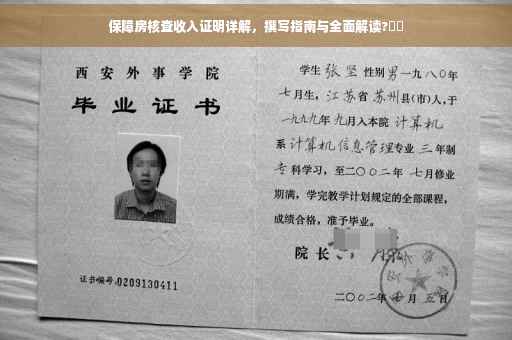 保障房核查收入证明详解，撰写指南与全面解读?
西安外事学院
毕业证书
证书编号:0209130411
学生 张坚 性别 男 一九八〇年
七月生，江苏省 苏州县(市)人，于
一九九九年 九月入本院 计算机
系 计算机信息管理专业 三 年制
专科学习，至二〇〇二年 七月修业
期满，学完教学计划规定的全部课程，
成绩合格，准予毕业。
院长
二〇〇二年 七 月 五 日